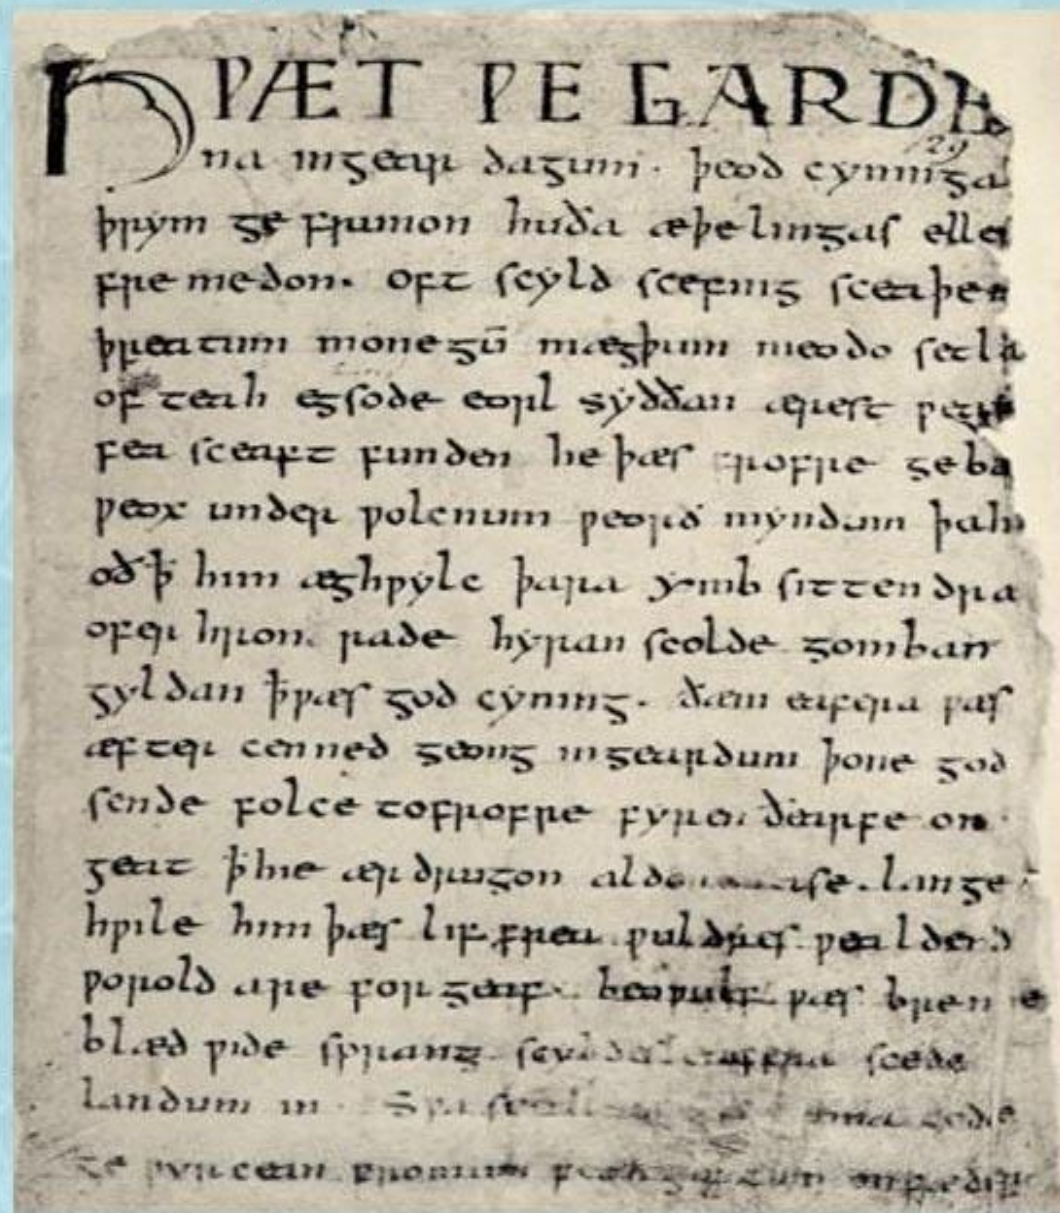 HǷÆT ǷE GARDE
129
na ingear dagum. þeod cyninga
þrym ge frunon huða æþelingas elle
fre medon. oft scyld scefing sceaþen
þreatum monegū mægþum meodo setla
of teah egsode eorl syððan ærest ƿear
fea sceaft funden he þæs frofre geba
ƿeox under ƿolcnum ƿeorð myndum þah
oð ꝥ him æghƿylc þara ymb sittendra
ofer hron rade hyran scolde gomban
gyldan ꝥ ƿæs god cyning. ðæm eafera ƿæs
æfter cenned geong ingeardum þone god
sende folce tofrofre fyren ðearfe on
geat ꝥ hie ær drugon lange
hƿile him þæs lif frea ƿuldres ƿealdend
ƿorold are for geaf. beoƿulf ƿæs breme
blæd ƿide sprang scyldes eafera scede
landum in. Sƿa sceal gode
ge ƿyrcean fromum feoh giftum